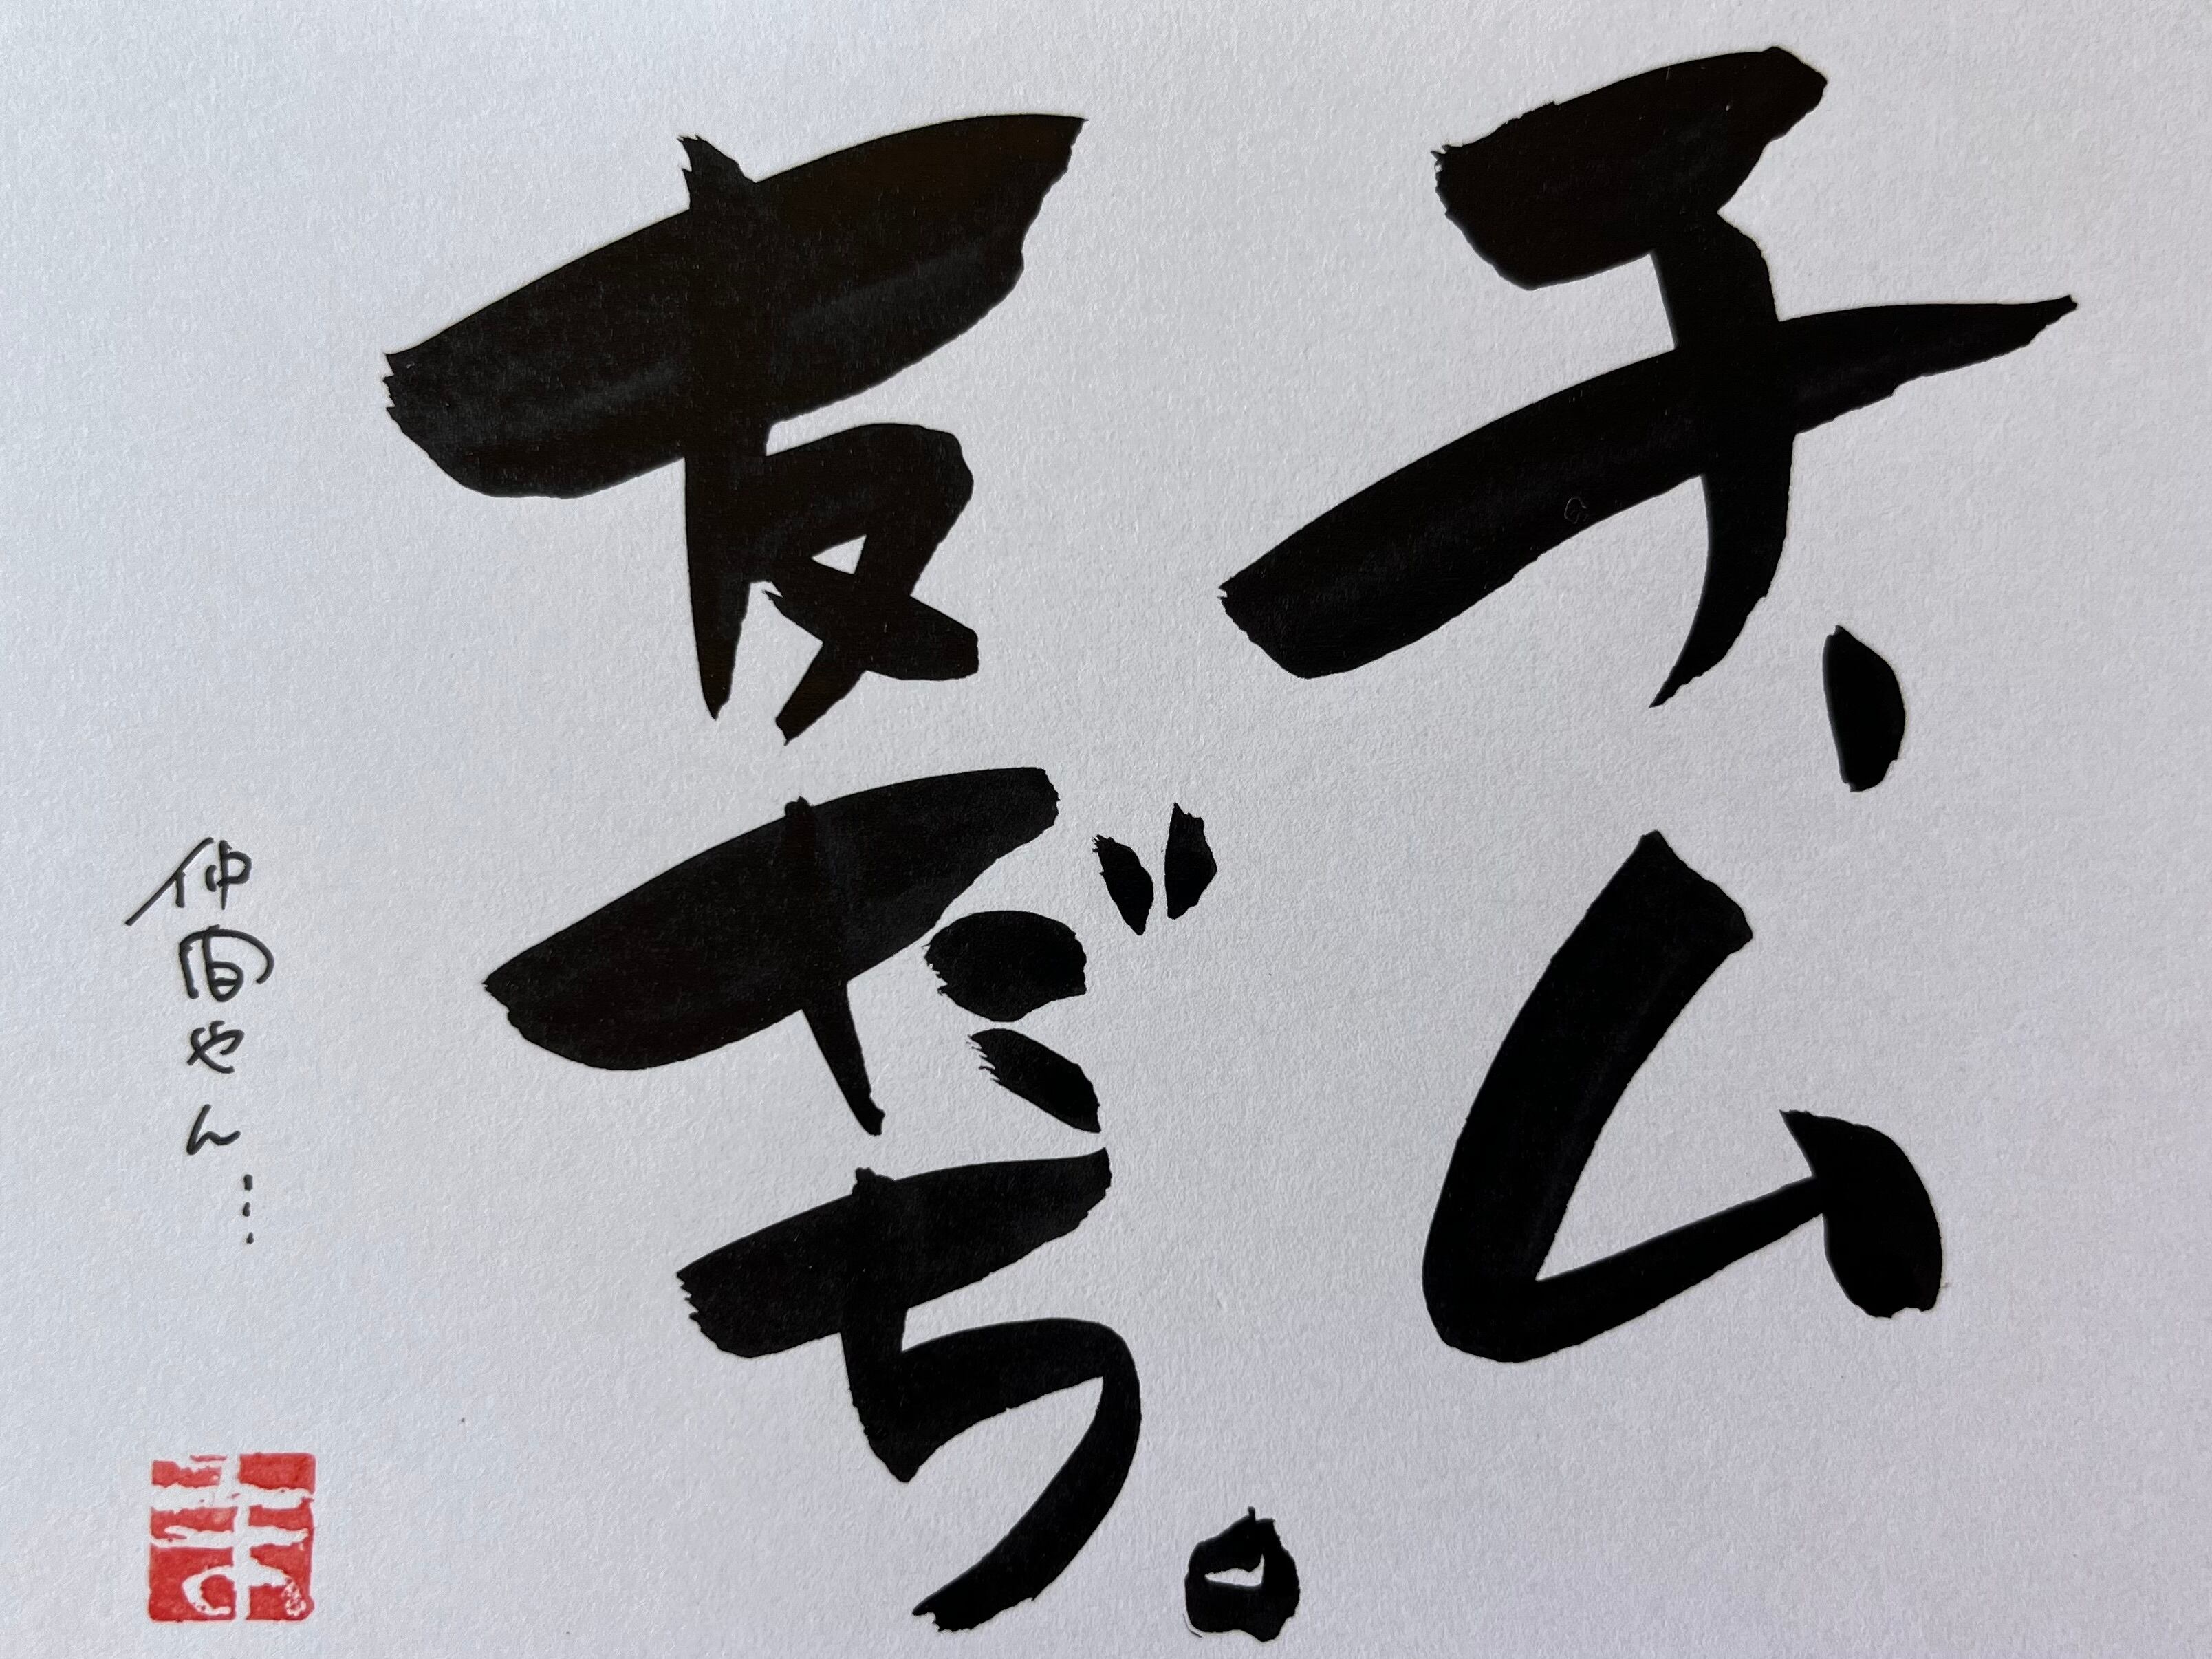 チーム
友だち。
仲間やん…